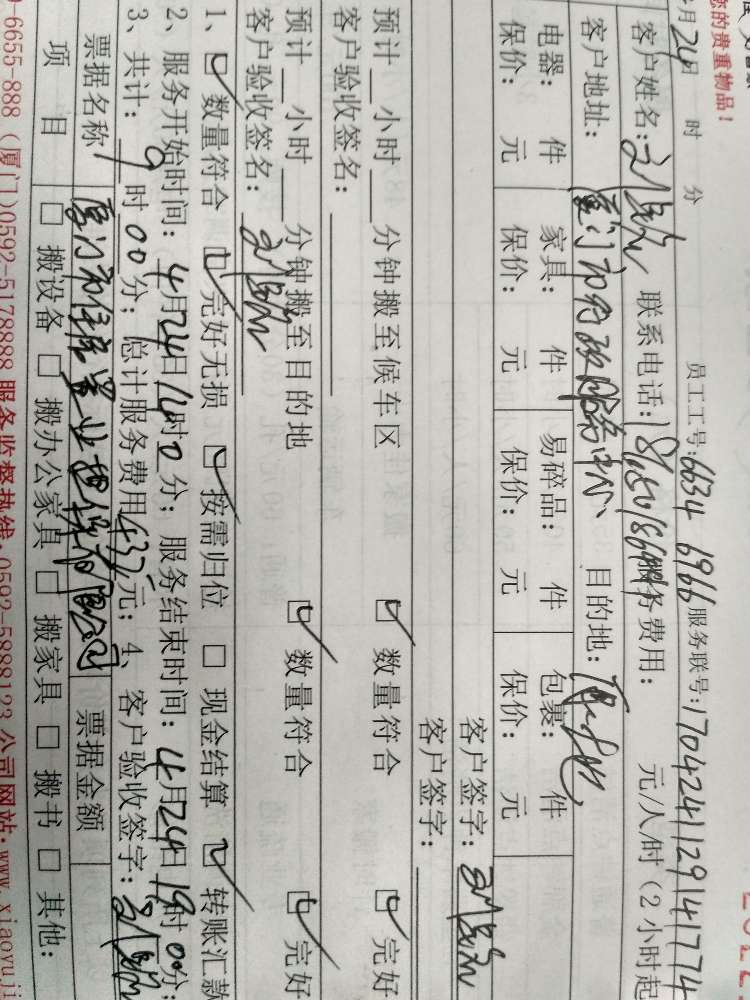 您的贵重物品！
月24日 时 分 员工工号:6634 6966 服务联号:1704241129141774
客户姓名: 联系电话: 服务费用: 元/人/时（2小时起
客户地址: 厦门市行政服务中心 目的地:
电器: 件 家具: 件 易碎品: 件 包裹: 件
保价: 元 保价: 元 保价: 元 保价: 元
客户签字:
客户签字:
预计 小时 分钟搬至候车区 ☑ 数量符合 ☑ 完好
客户验收签名:
预计 小时 分钟搬至目的地 ☑ 数量符合 ☑ 完好
客户验收签名:
1、☑ 数量符合 ☑ 完好无损 ☑ 按需归位 □ 现金结算 ☑ 转账汇款
2、服务开始时间: 4月24日14时0分; 服务结束时间: 4月24日19时00分;
3、共计: 9时00分; 总计服务费用432元; 4、客户验收签字:
票据名称 厦门市 置业 有限公司 票据金额
项目 □ 搬设备 □ 搬办公家具 □ 搬家具 □ 搬书 □ 其他:
6655-888（厦门)0592-5178888 服务监督热线:0592-5888123 公司网站:www.xiaoyuji